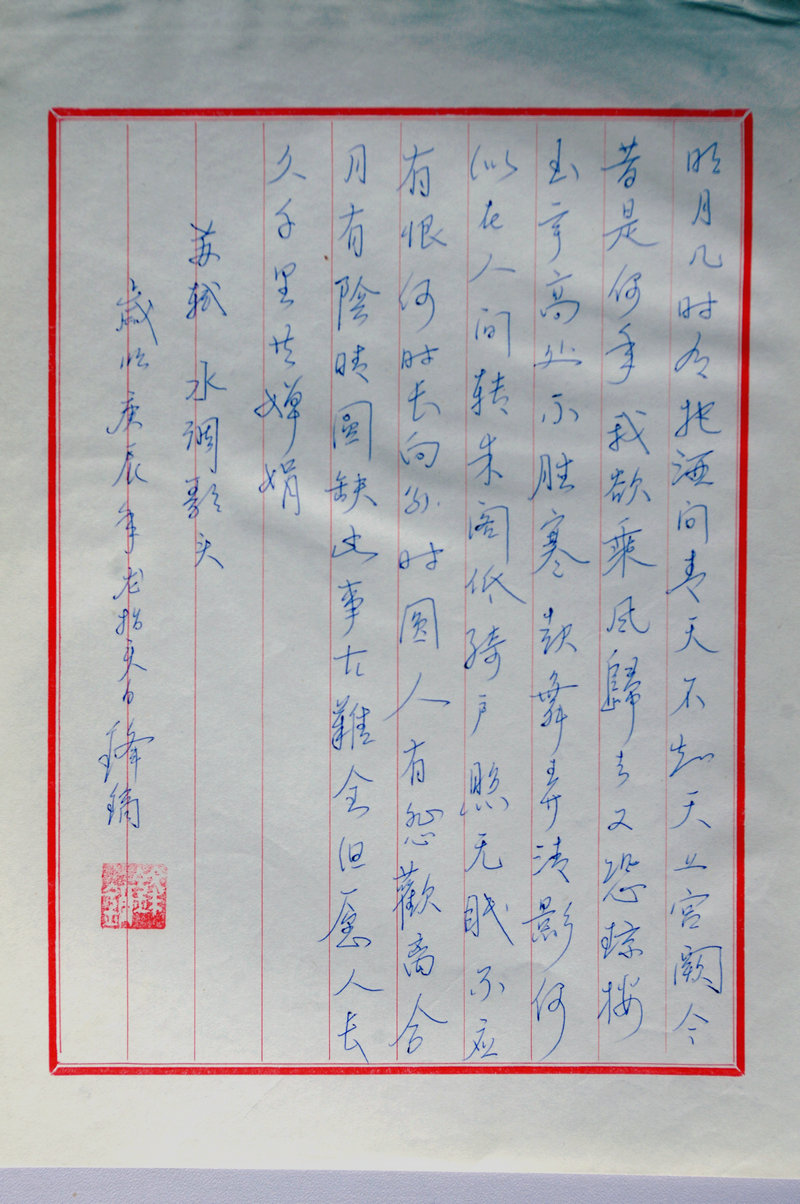 明月几时有把酒问青天不知天上宫阙今
昔是何年我欲乘风歸去又恐琼楼
玉宇高处不胜寒起舞弄清影何
似在人间转朱阁低绮户照无眠不应
有恨何时长向别时圆人有悲歡离合
月有陰晴圓缺此事古難全但愿人长
久千里共婵娟
苏轼 水调歌头
歲次庚辰年龙抬头日